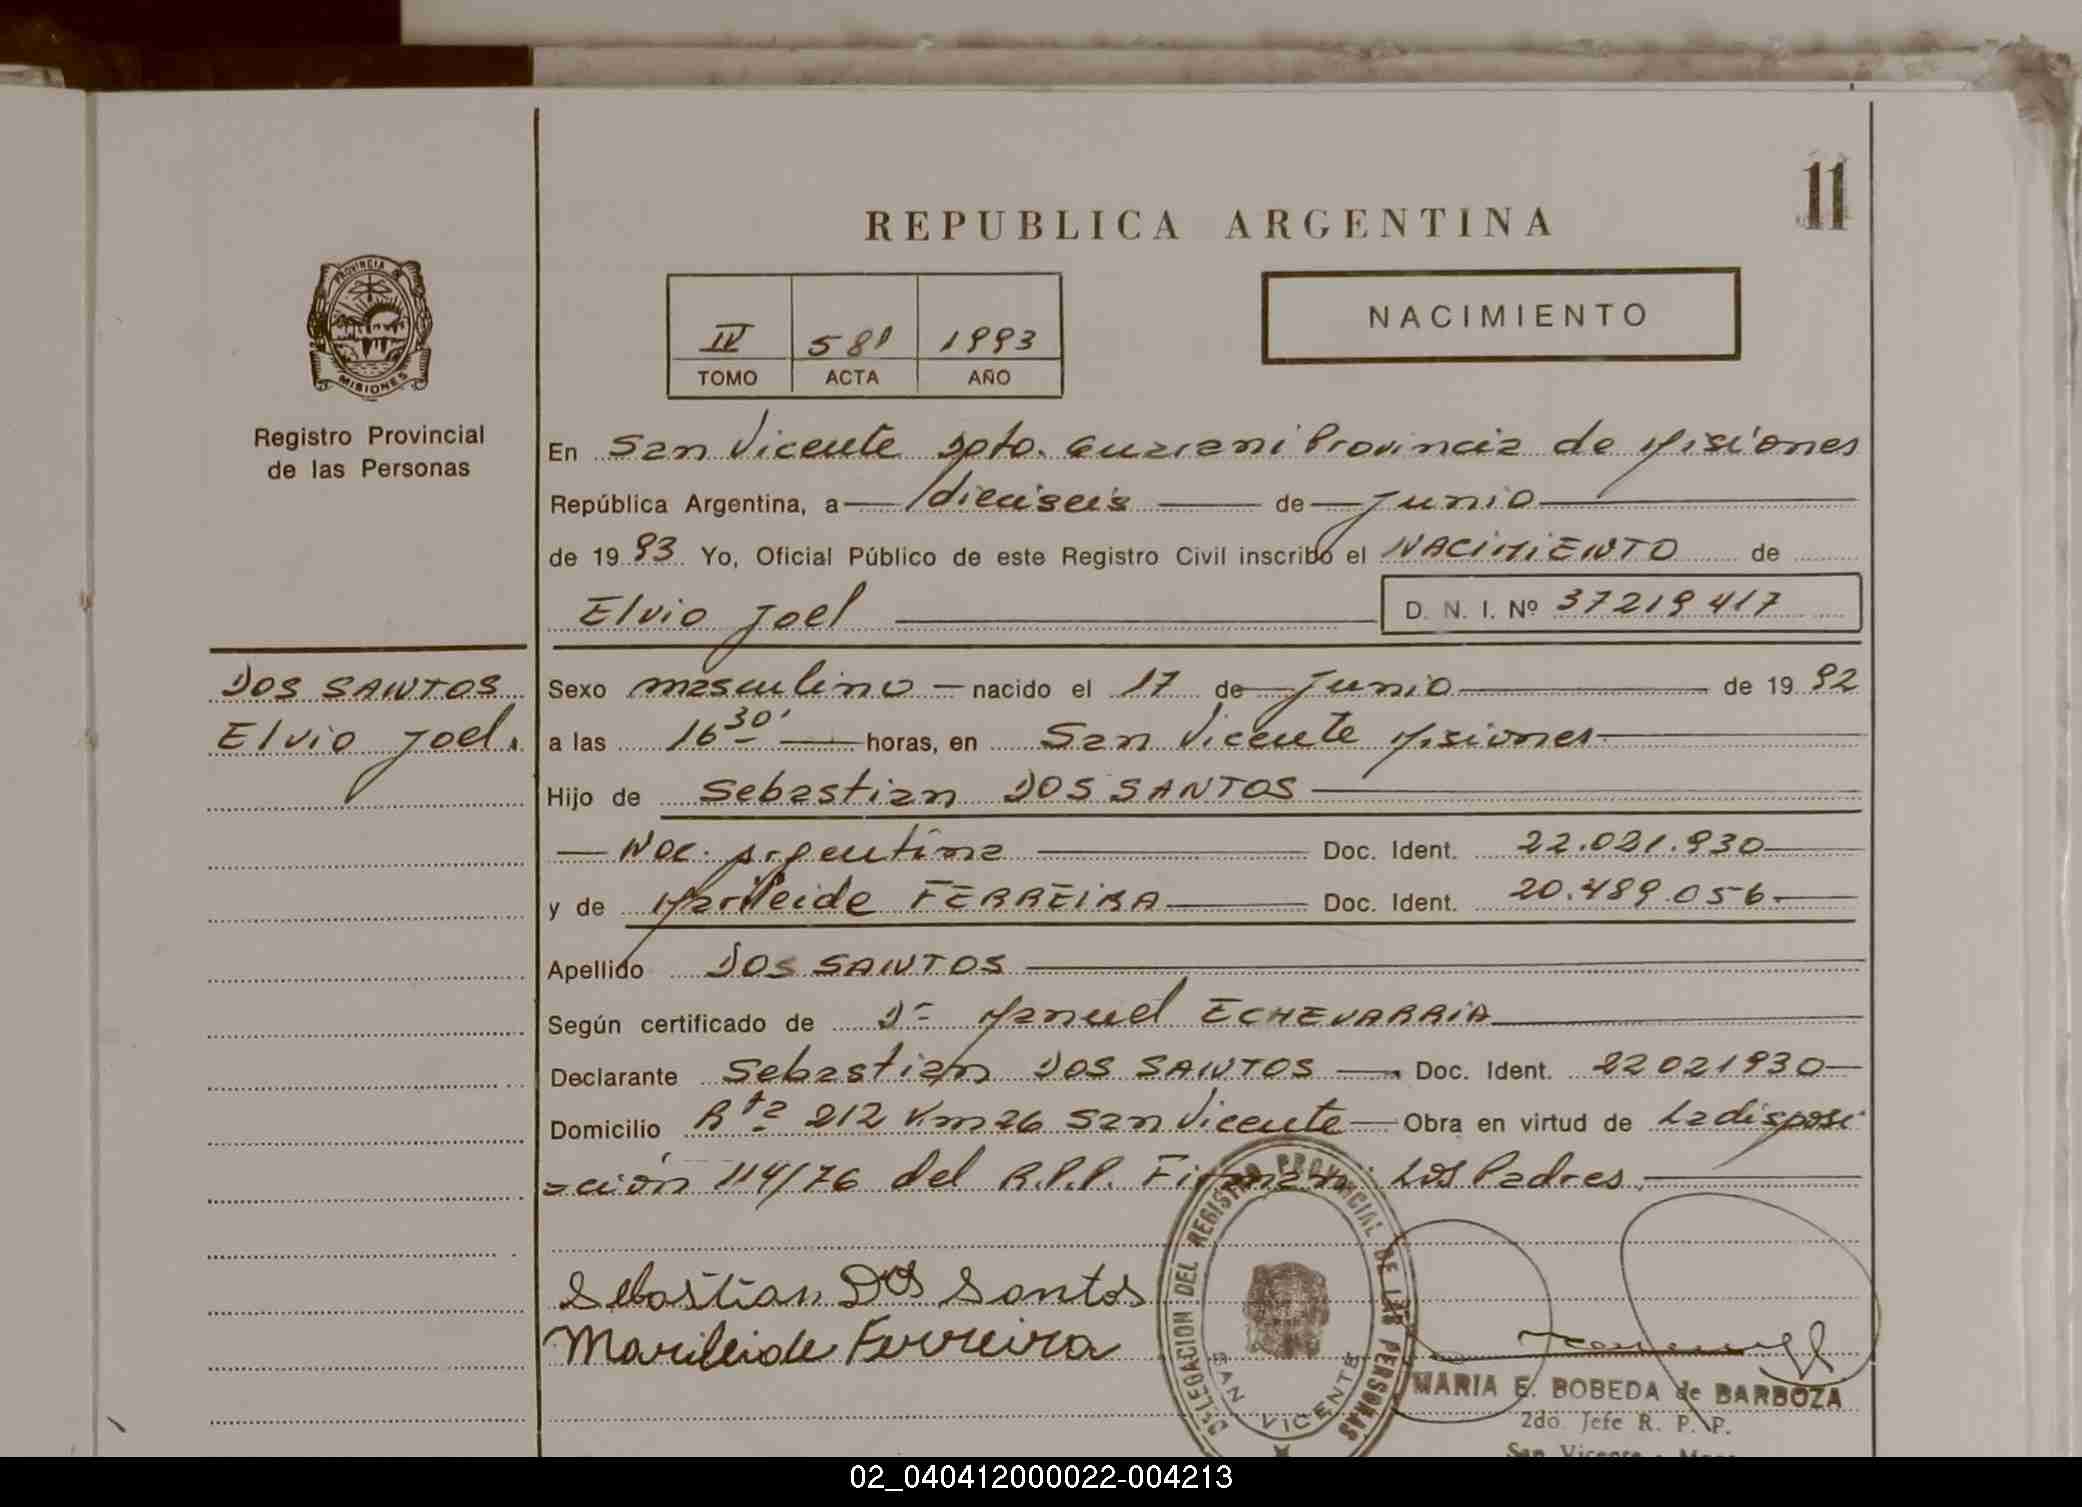 11
REPUBLICA ARGENTINA
PROVINCIA DE
MISIONES
Registro Provincial
de las Personas
IV 581 1993
TOMO ACTA AÑO
NACIMIENTO
En San Vicente Dpto. Guarani Provincia de Misiones
República Argentina, a dieciseis de Junio
de 1993 Yo, Oficial Público de este Registro Civil inscribo el NACIMIENTO de
Elvio Joel D. N. I. Nº 37219417
DOS SANTOS
Elvio Joel.
Sexo masculino nacido el 17 de Junio de 1992
a las 16 30' horas, en San Vicente Misiones
Hijo de Sebastian DOS SANTOS
Nac. Argentina Doc. Ident. 22.021.930
y de Marileide FERREIRA Doc. Ident. 20.489.056.
Apellido DOS SANTOS
Según certificado de Dr Manuel ECHEVARRIA
Declarante Sebastian DOS SANTOS Doc. Ident. 22021930
Domicilio Rta 212 Km 26 San Vicente Obra en virtud de La disposi
ción 114/76 del R.P.P. Firman: Los Padres.
Sebastian Dos Santos
Marileide Ferreira
DELEGACION DEL REGISTRO PROVINCIAL DE LAS PERSONAS
SAN VICENTE
MARIA E. BOBEDA de BARBOZA
2do. Jefe R. P. P.
San Vicente - Mnes
02_040412000022-004213